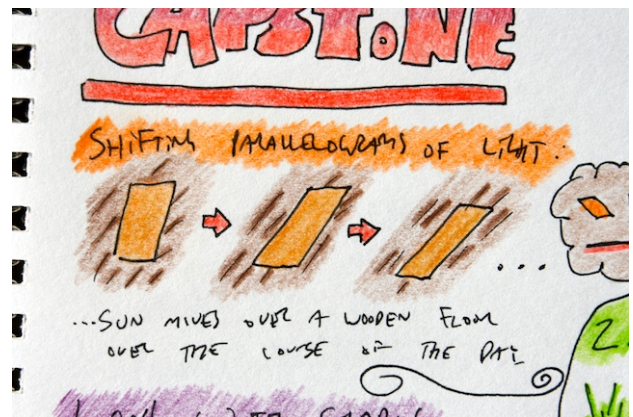 CAPSTONE
SHIFTING PARALLELOGRAMS OF LIGHT:
...SUN MOVES OVER A WOODEN FLOOR
OVER THE COURSE OF THE DAY
2.